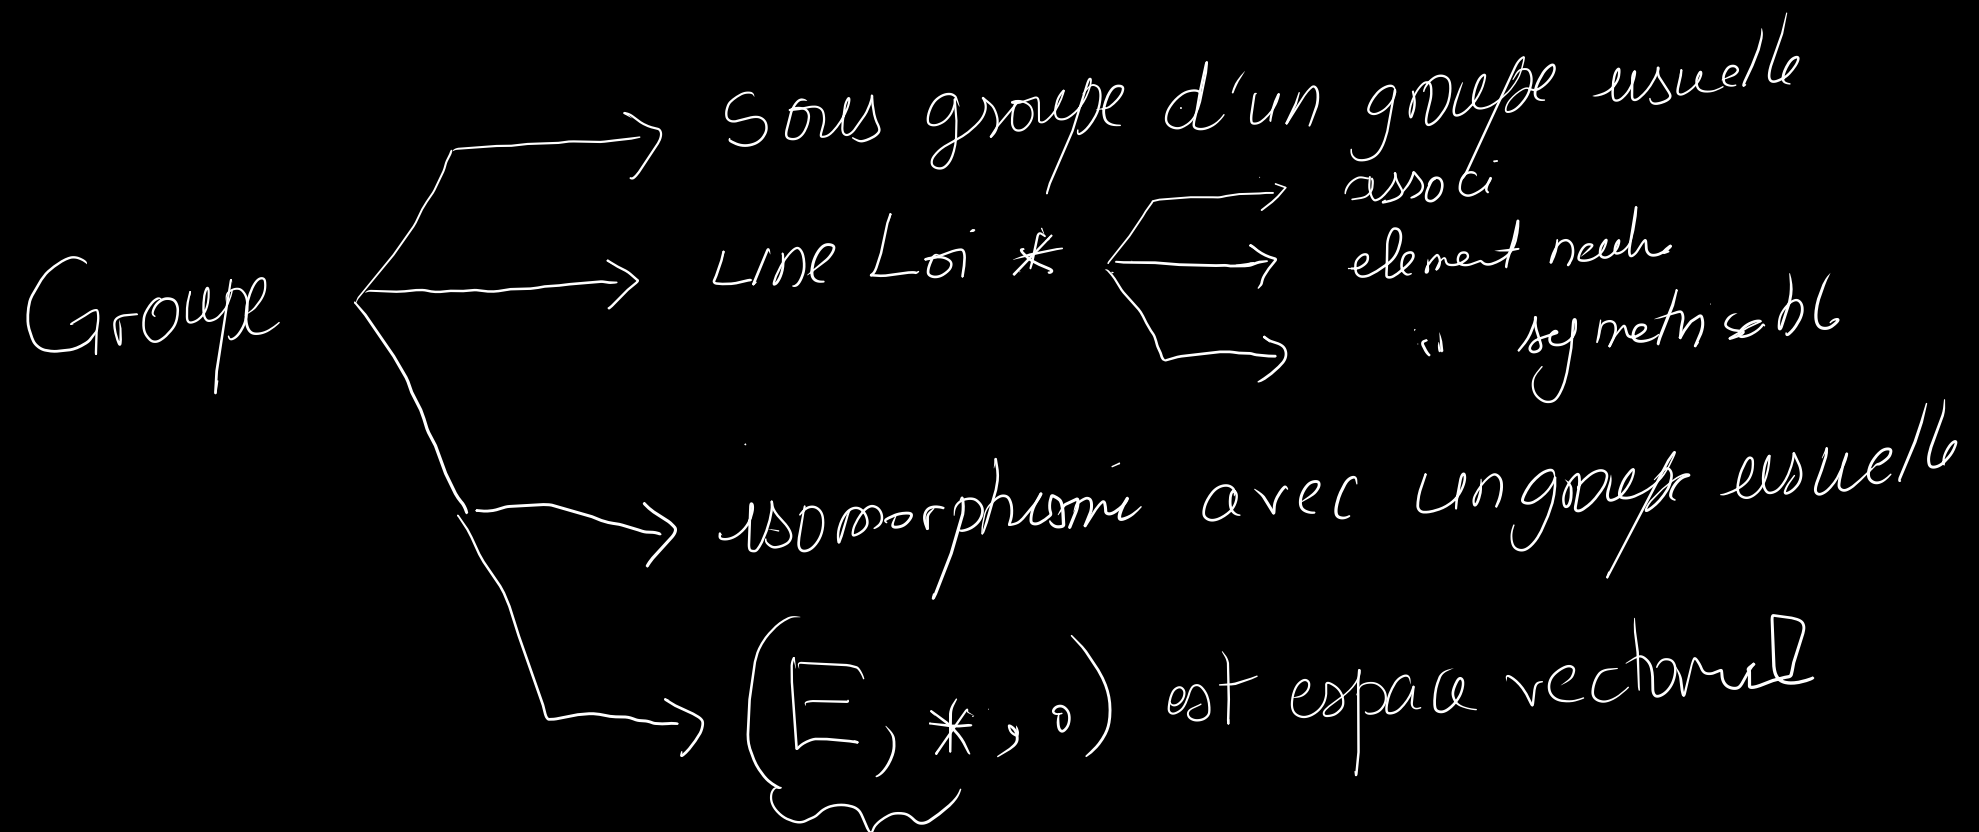 Sous groupe d'un groupe usuelle
associ
Groupe
une Loi *
element neutre
" symetrisable
isomorphisme avec un groupe usuelle
(E, *, °) est espace vectoriel